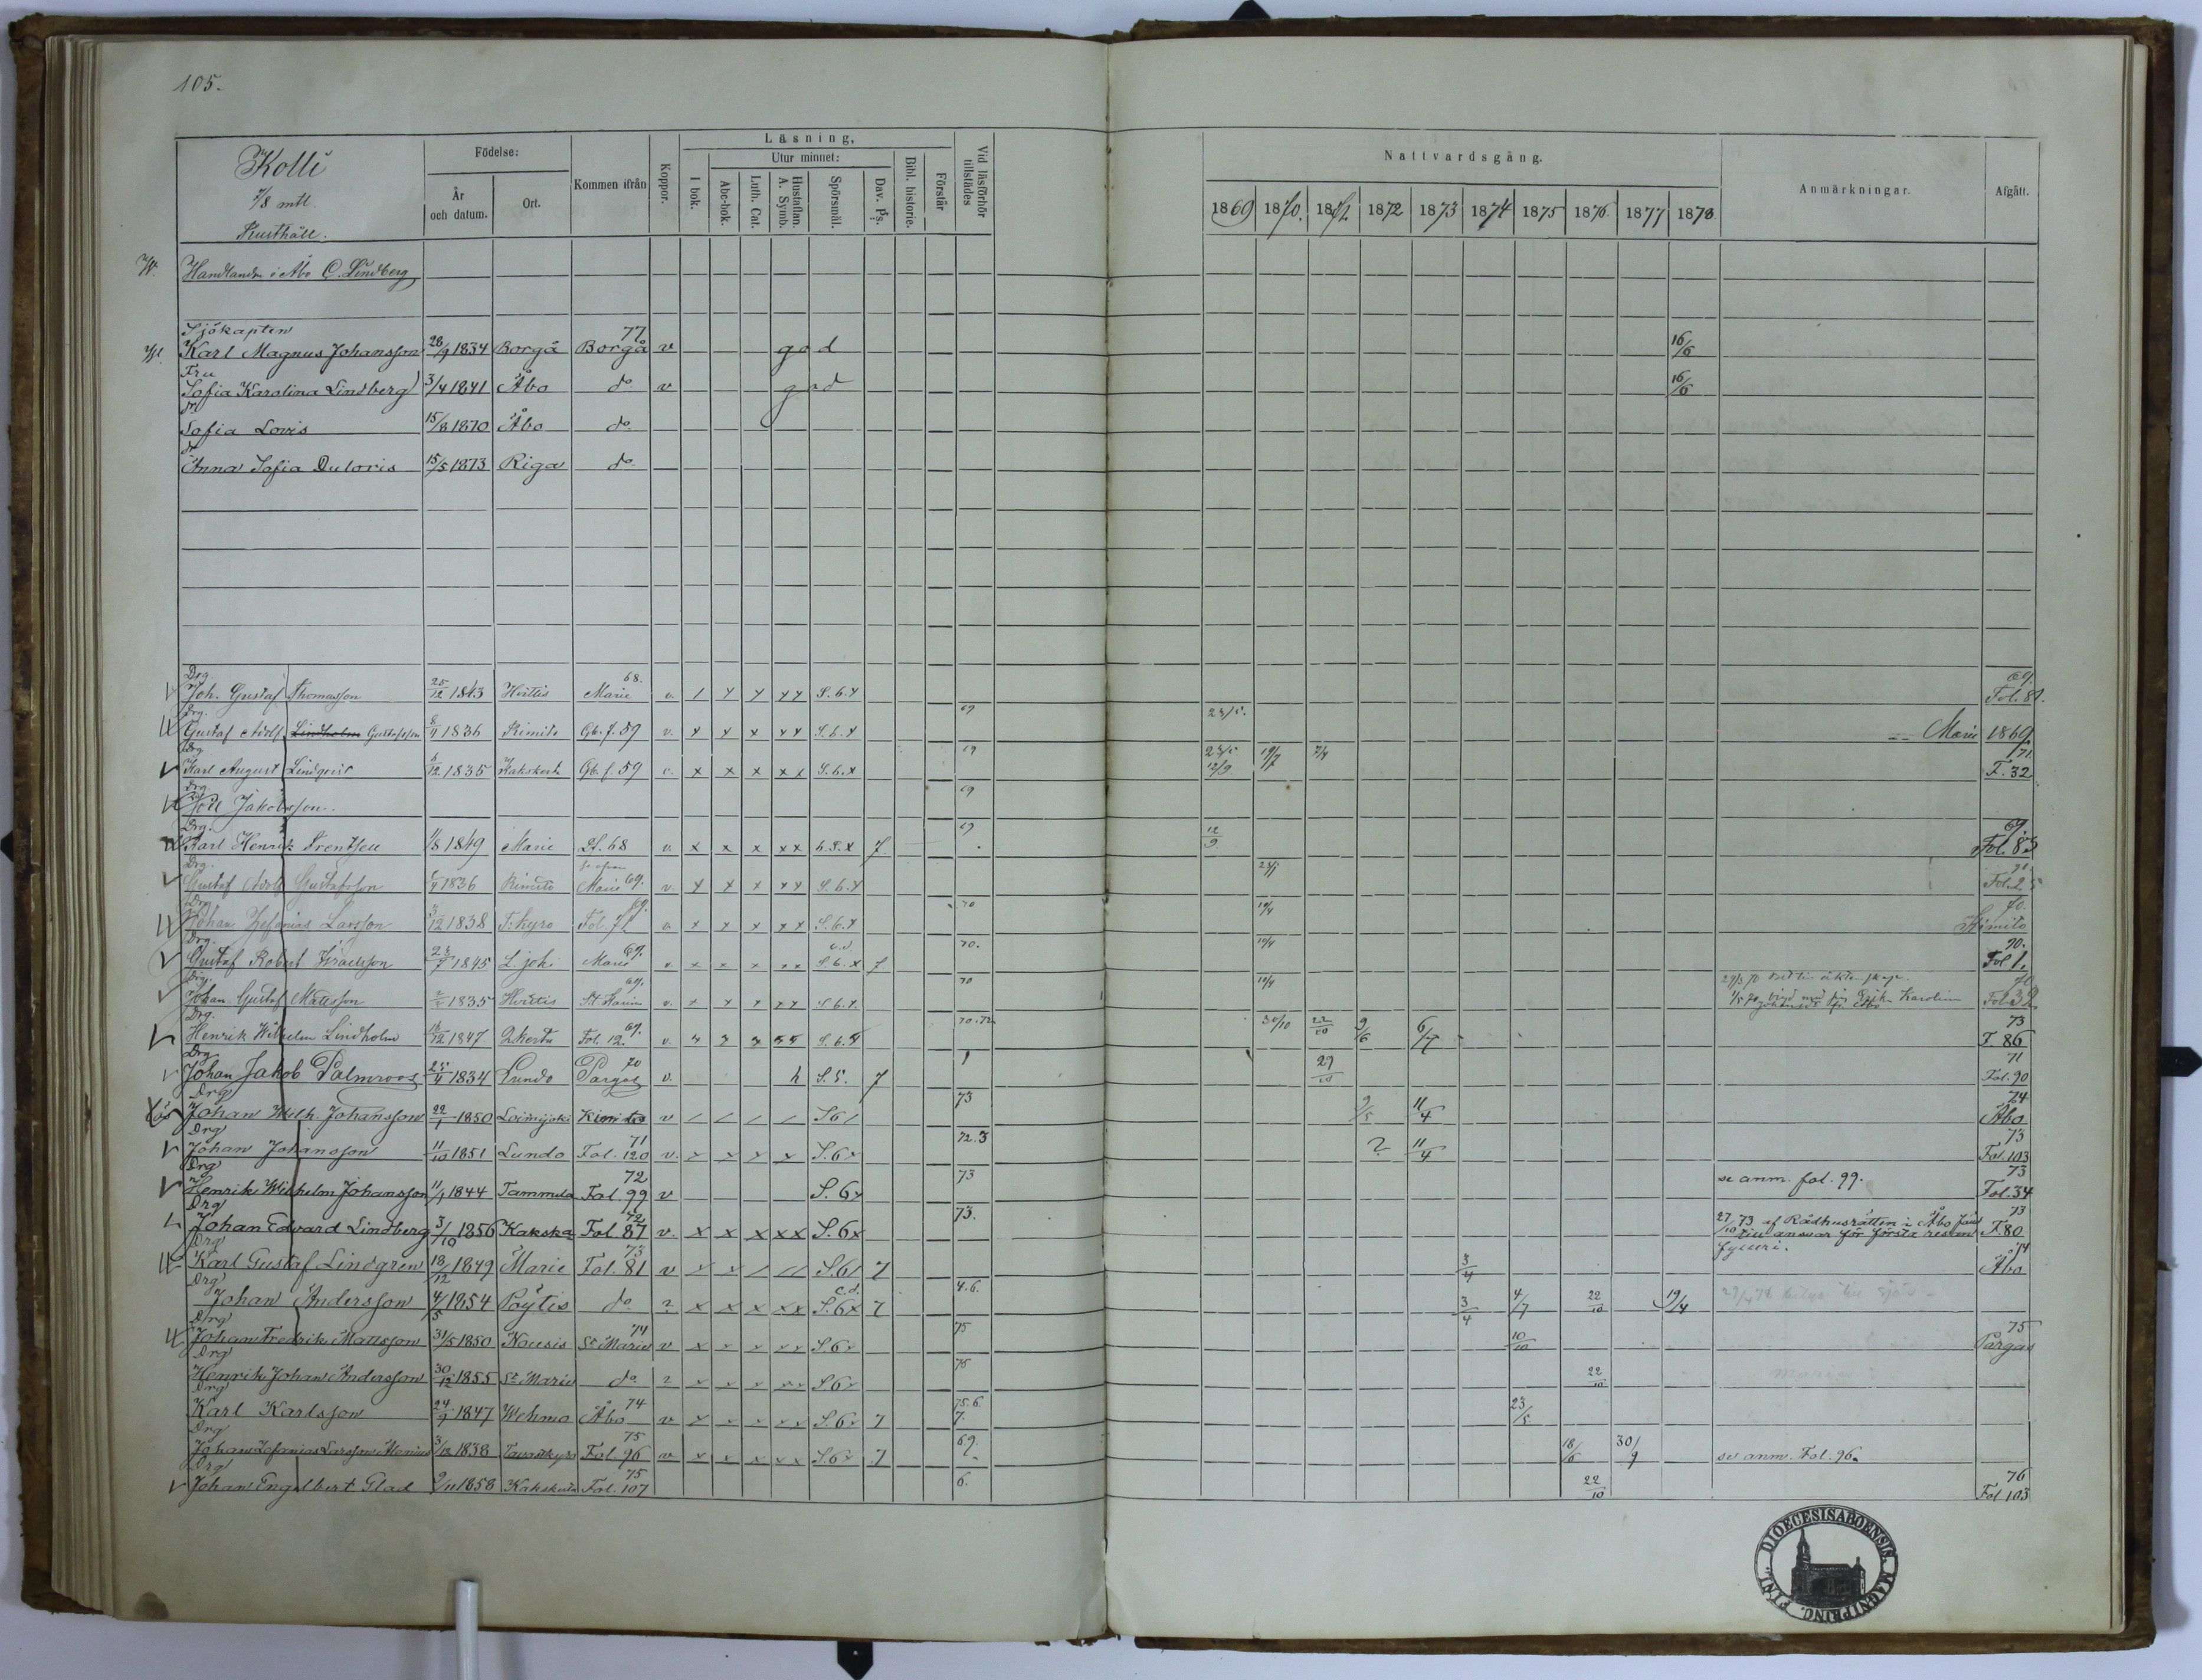 105.
Kolli
7/8 mtl.
Rusthåll.
Födelse:
År och datum.
Ort.
Kommen ifrån
Koppor.
Läsning.
I bok.
Utur minnet:
Abc-bok.
Luth. Cat.
Hustaflan. A. Symb.
Spörsmål.
Dav. Ps.
Bibl. historie.
Förstår
Vid läsförhör tillstädes
Nattvardsgång.
1869 1870. 1871. 1872 1873 1874 1875 1876 1877 1878
Anmärkningar.
Afgått.
Handlanden i Åbo C. Lindberg
Sjökapten
Karl Magnus Johansson 28/9 1834 Borgå 77 Borgå v god 16/6
Fru
Sofia Karolina Lindberg 3/4 1841 Åbo do v god 16/6
Sofia Lovis 15/8 1870 Åbo do
Anna Sofia Duloris 15/5 1873 Riga do
Drg.
Joh. Gustaf Thomasson 25/12 1843 Hvittis Marie 68. v. S. 6. x 69. Fol. 81.
Drg.
Gustaf Adolf Lindholm Gustafsson 1836 Kimito Gb. f. 59 v. x x x x x S. 6. x 69 23/5. Marie 1869
Drg.
Karl August Lindqvist 6/12 1835 Kakskerta Gb. f. 59 v. x x x x x S. 6. x 69 23/5 12/9 71. F. 32
Drg.
Jakobsson. 69
Drg.
Karl Henrik Frentzell 1/8 1849 Marie Pl. 68 v x x x x x 6. S. x 7 69 12/9 69 Fol. 83
Drg.
Gustaf Adolf Gustafsson 1836 Kimito Marie 69. v. x x x x x S. 6. x 70 Fol. 25
Drg.
Johan Zefanias Larsson 3/12 1838 T. kyro Fol. 71 69. v. x x x x x S. 6. x 70 10/4 70. Kimito
Drg.
Gustaf Robert Israelsson 1845 L. joki Marie 69. v. x x x x x S. 6. x 7 70. 10/4 70. Fol 1.
Drg.
Johan Gustaf Mattsson 1835 Hvittis St Karins 69. v. x x x x x S. 6. x. 70 10/4 70 Fol. 32
Drg.
Henrik Wilhelm Lindholm 1847 Kkerta Fol. 12. 69. v. S. 6. x 70.72 30/10 22/10 9/6 6/7 73 F. 86
Drg
Johan Jakob Palmroos 25/4 1834 Lundo Pargas 70 v. h S. 5. 7 1 29/10 71 Fol. 90
Drg
Johan Wilh. Johansson 22/1 1850 Loimijoki Kimito v / / / / S 6 / 73 9/5 11/4 74 Åbo
Drg
Johan Johansson 11/10 1851 Lundo Fol. 120 71 v. x x x x S. 6 x 72.3 ? 11/4 73 Fol. 103
Drg
Henrik Wilhelm Johansson 11/1 1844 Tammela Fol. 99 72 v S. 6x 73 se anm. fol. 99. 73 Fol. 34
Drg
Johan Edvard Lindberg 3/10 1856 Kakska Fol. 87 72 v. x x x x x S. 6x 73. 27/10 73 af Rådhusrätten i Åbo till ansvar för första resan fylleri. 73 F. 80
Drg
Karl Gustaf Lindgren 18/12 1849 Marie Fol. 81 73 v x x / / / S. 6 / 7 3/4 74 Åbo
Drg
Johan Andersson 4/5 1854 Pöytis do ? x x x x x S. 6x 7 4.6. 3/4 4/7 22/10 19/4
Drg
Johan Fredrik Mattsson 31/5 1850 Nousis St Marie 74 v x x x x x S. 6x 75 10/10 75 Pargas
Drg
Henrik Johan Andersson 30/12 1855 St Marie do ? x x x x x S. 6x 75 22/10
Drg
Karl Karlsson 24/9 1847 Wehmo Åbo 74 v x x x x x S. 6x 7 75.6.7. 23/5
Drg
Johan Zefanias Larsson 3/12 1838 Tavastkyro Fol. 96 75 v x x x x x S. 6x 7 69. 18/6 30/9 se anm. Fol. 96.
Drg
Johan Engelbert Glad 9/11 1858 Kakskerta Fol. 107 75 6. 22/10 76 Fol 103
DIOECESIS ABOENSIS. MAGNI PRINC. FINL.